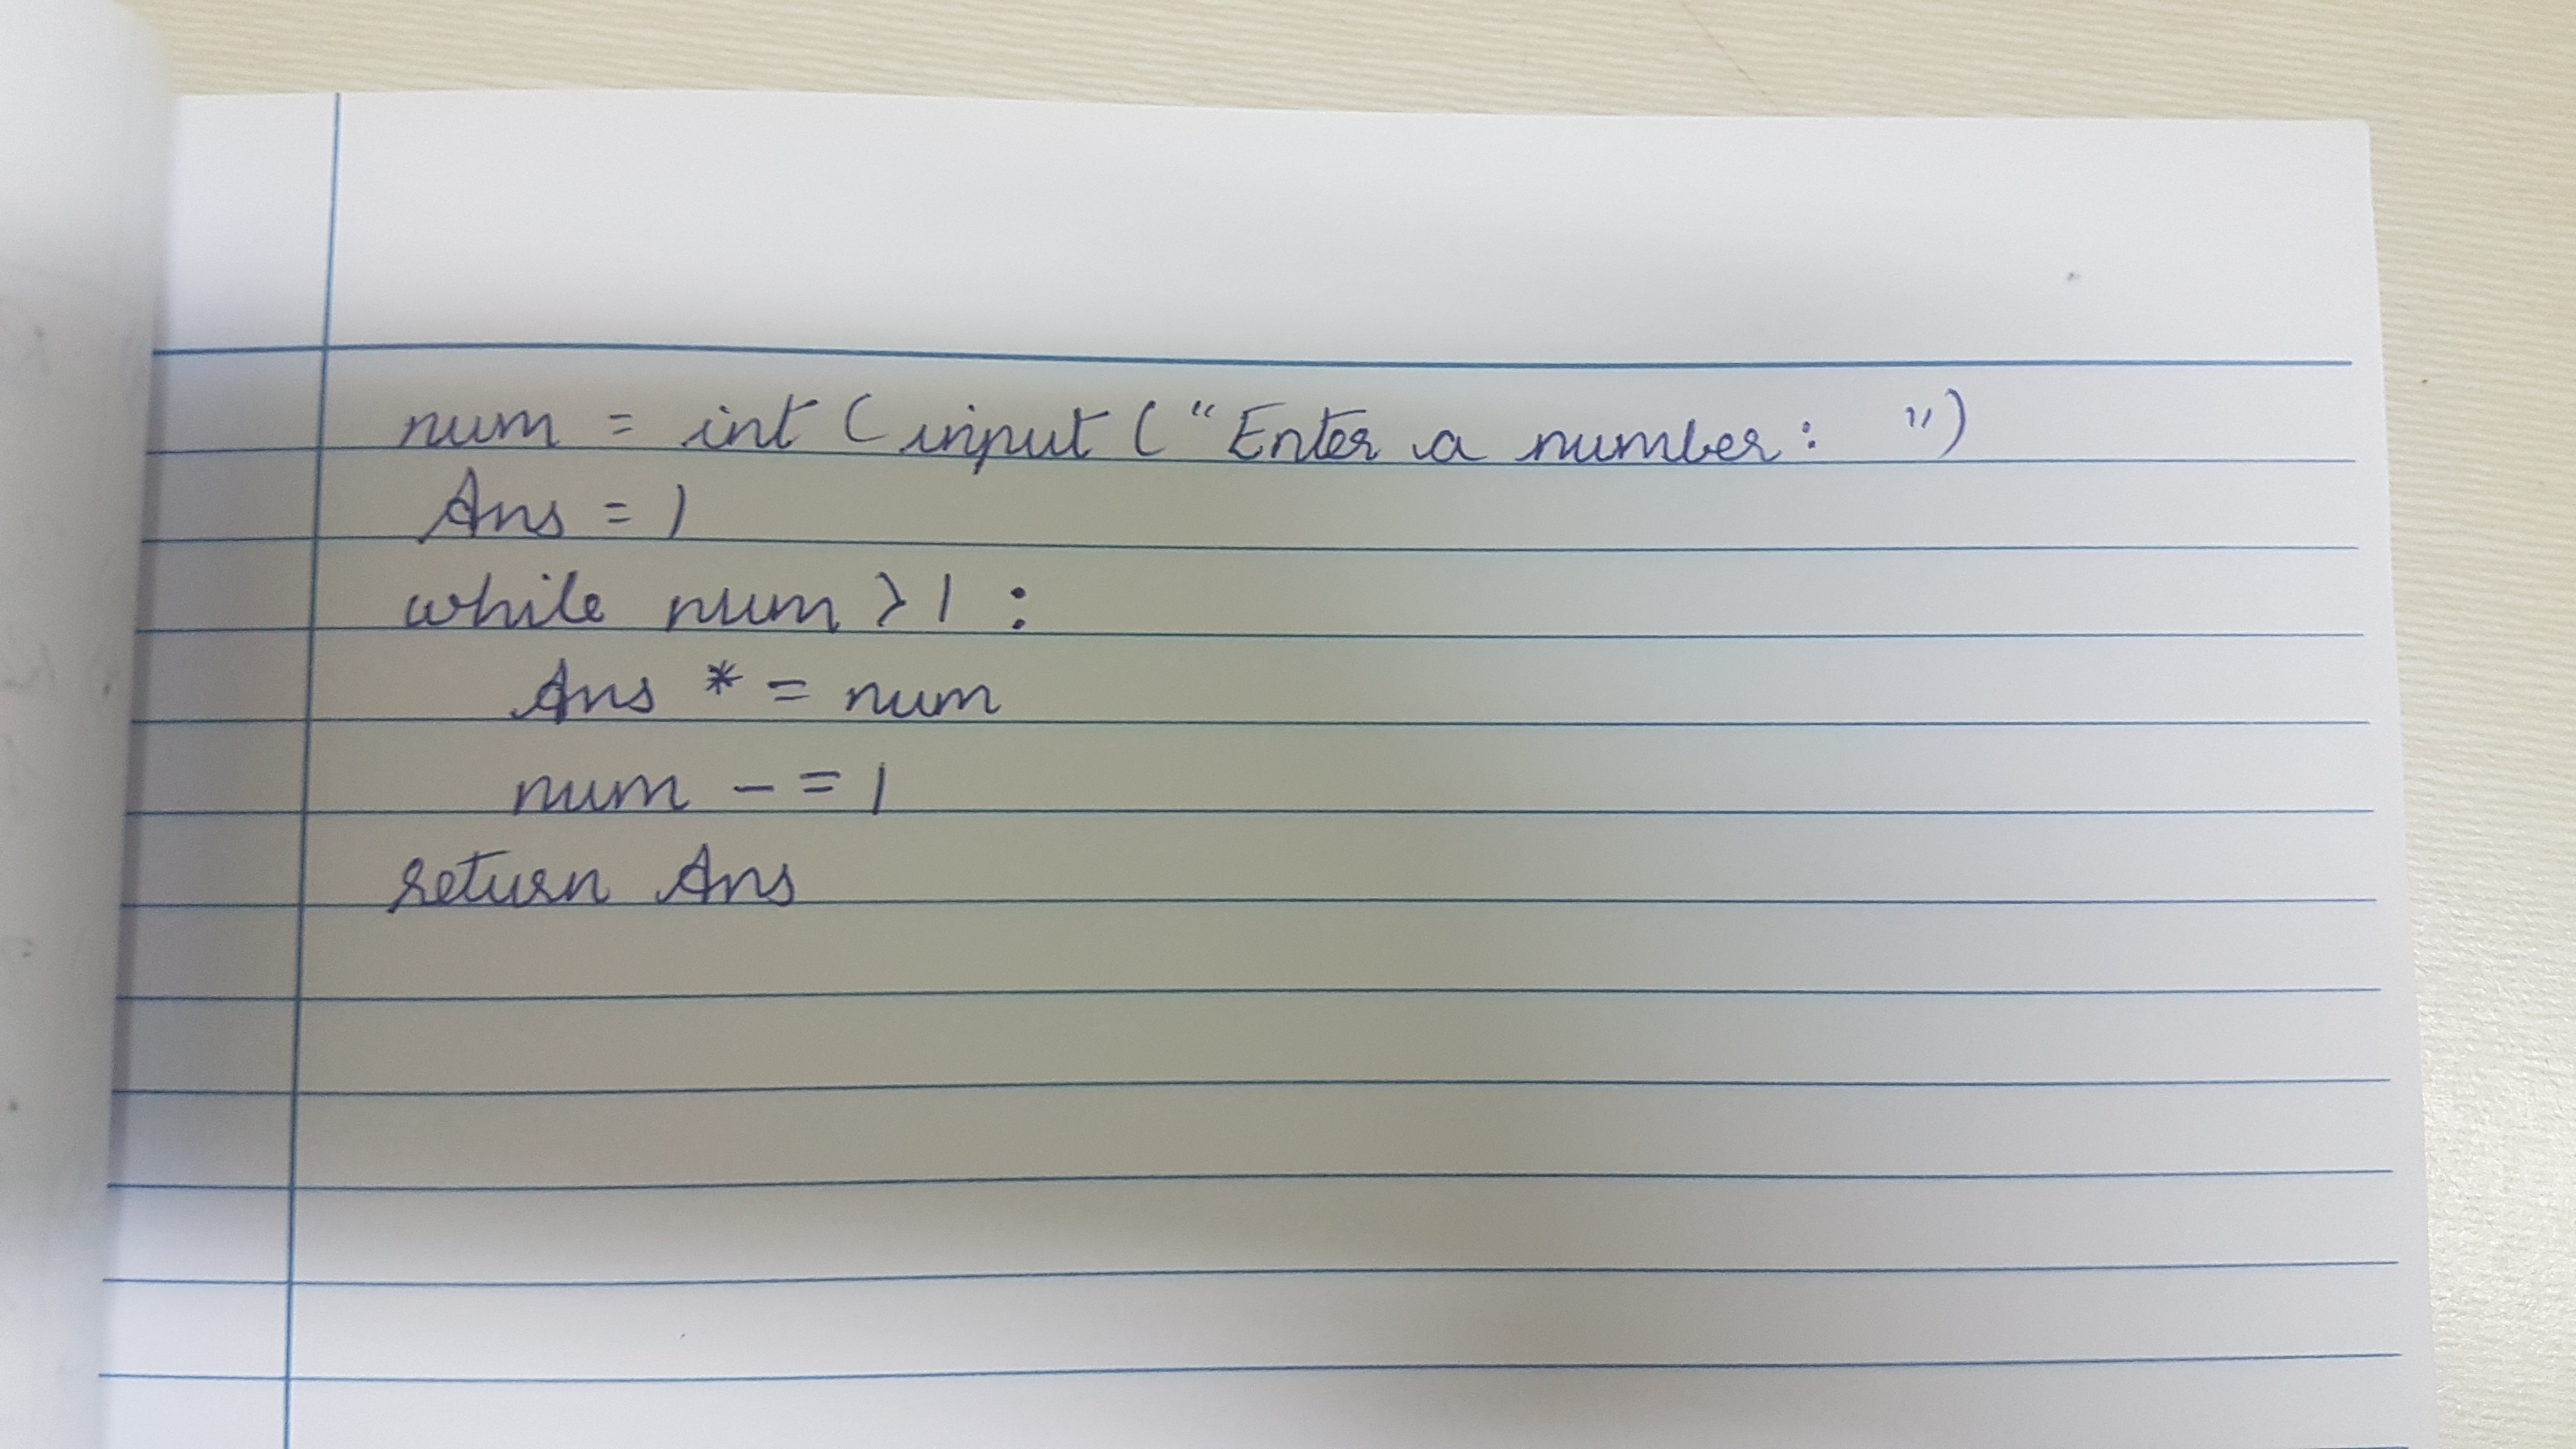 num = int (input ("Enter a number: ")
Ans = 1
while num > 1 :
Ans * = num
num - = 1
return Ans